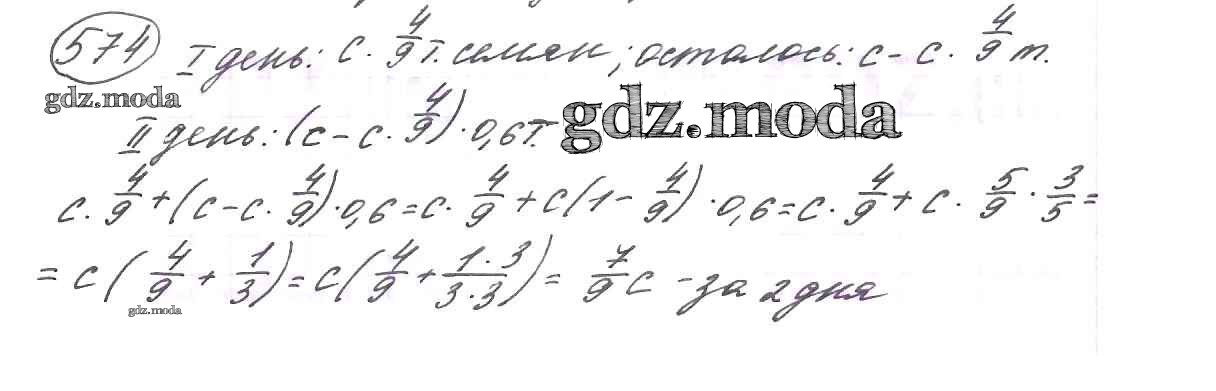 574 I день: с · 4/9 т. семян; осталось: с - с · 4/9 т.
gdz.moda
II день: (с - с · 4/9) · 0,6 т. gdz.moda
с · 4/9 + (с - с · 4/9) · 0,6 = с · 4/9 + с(1 - 4/9) · 0,6 = с · 4/9 + с · 5/9 · 3/5 =
= с(4/9 + 1/3) = с(4/9 + 1·3/3·3) = 7/9 с - за 2 дня
gdz.moda